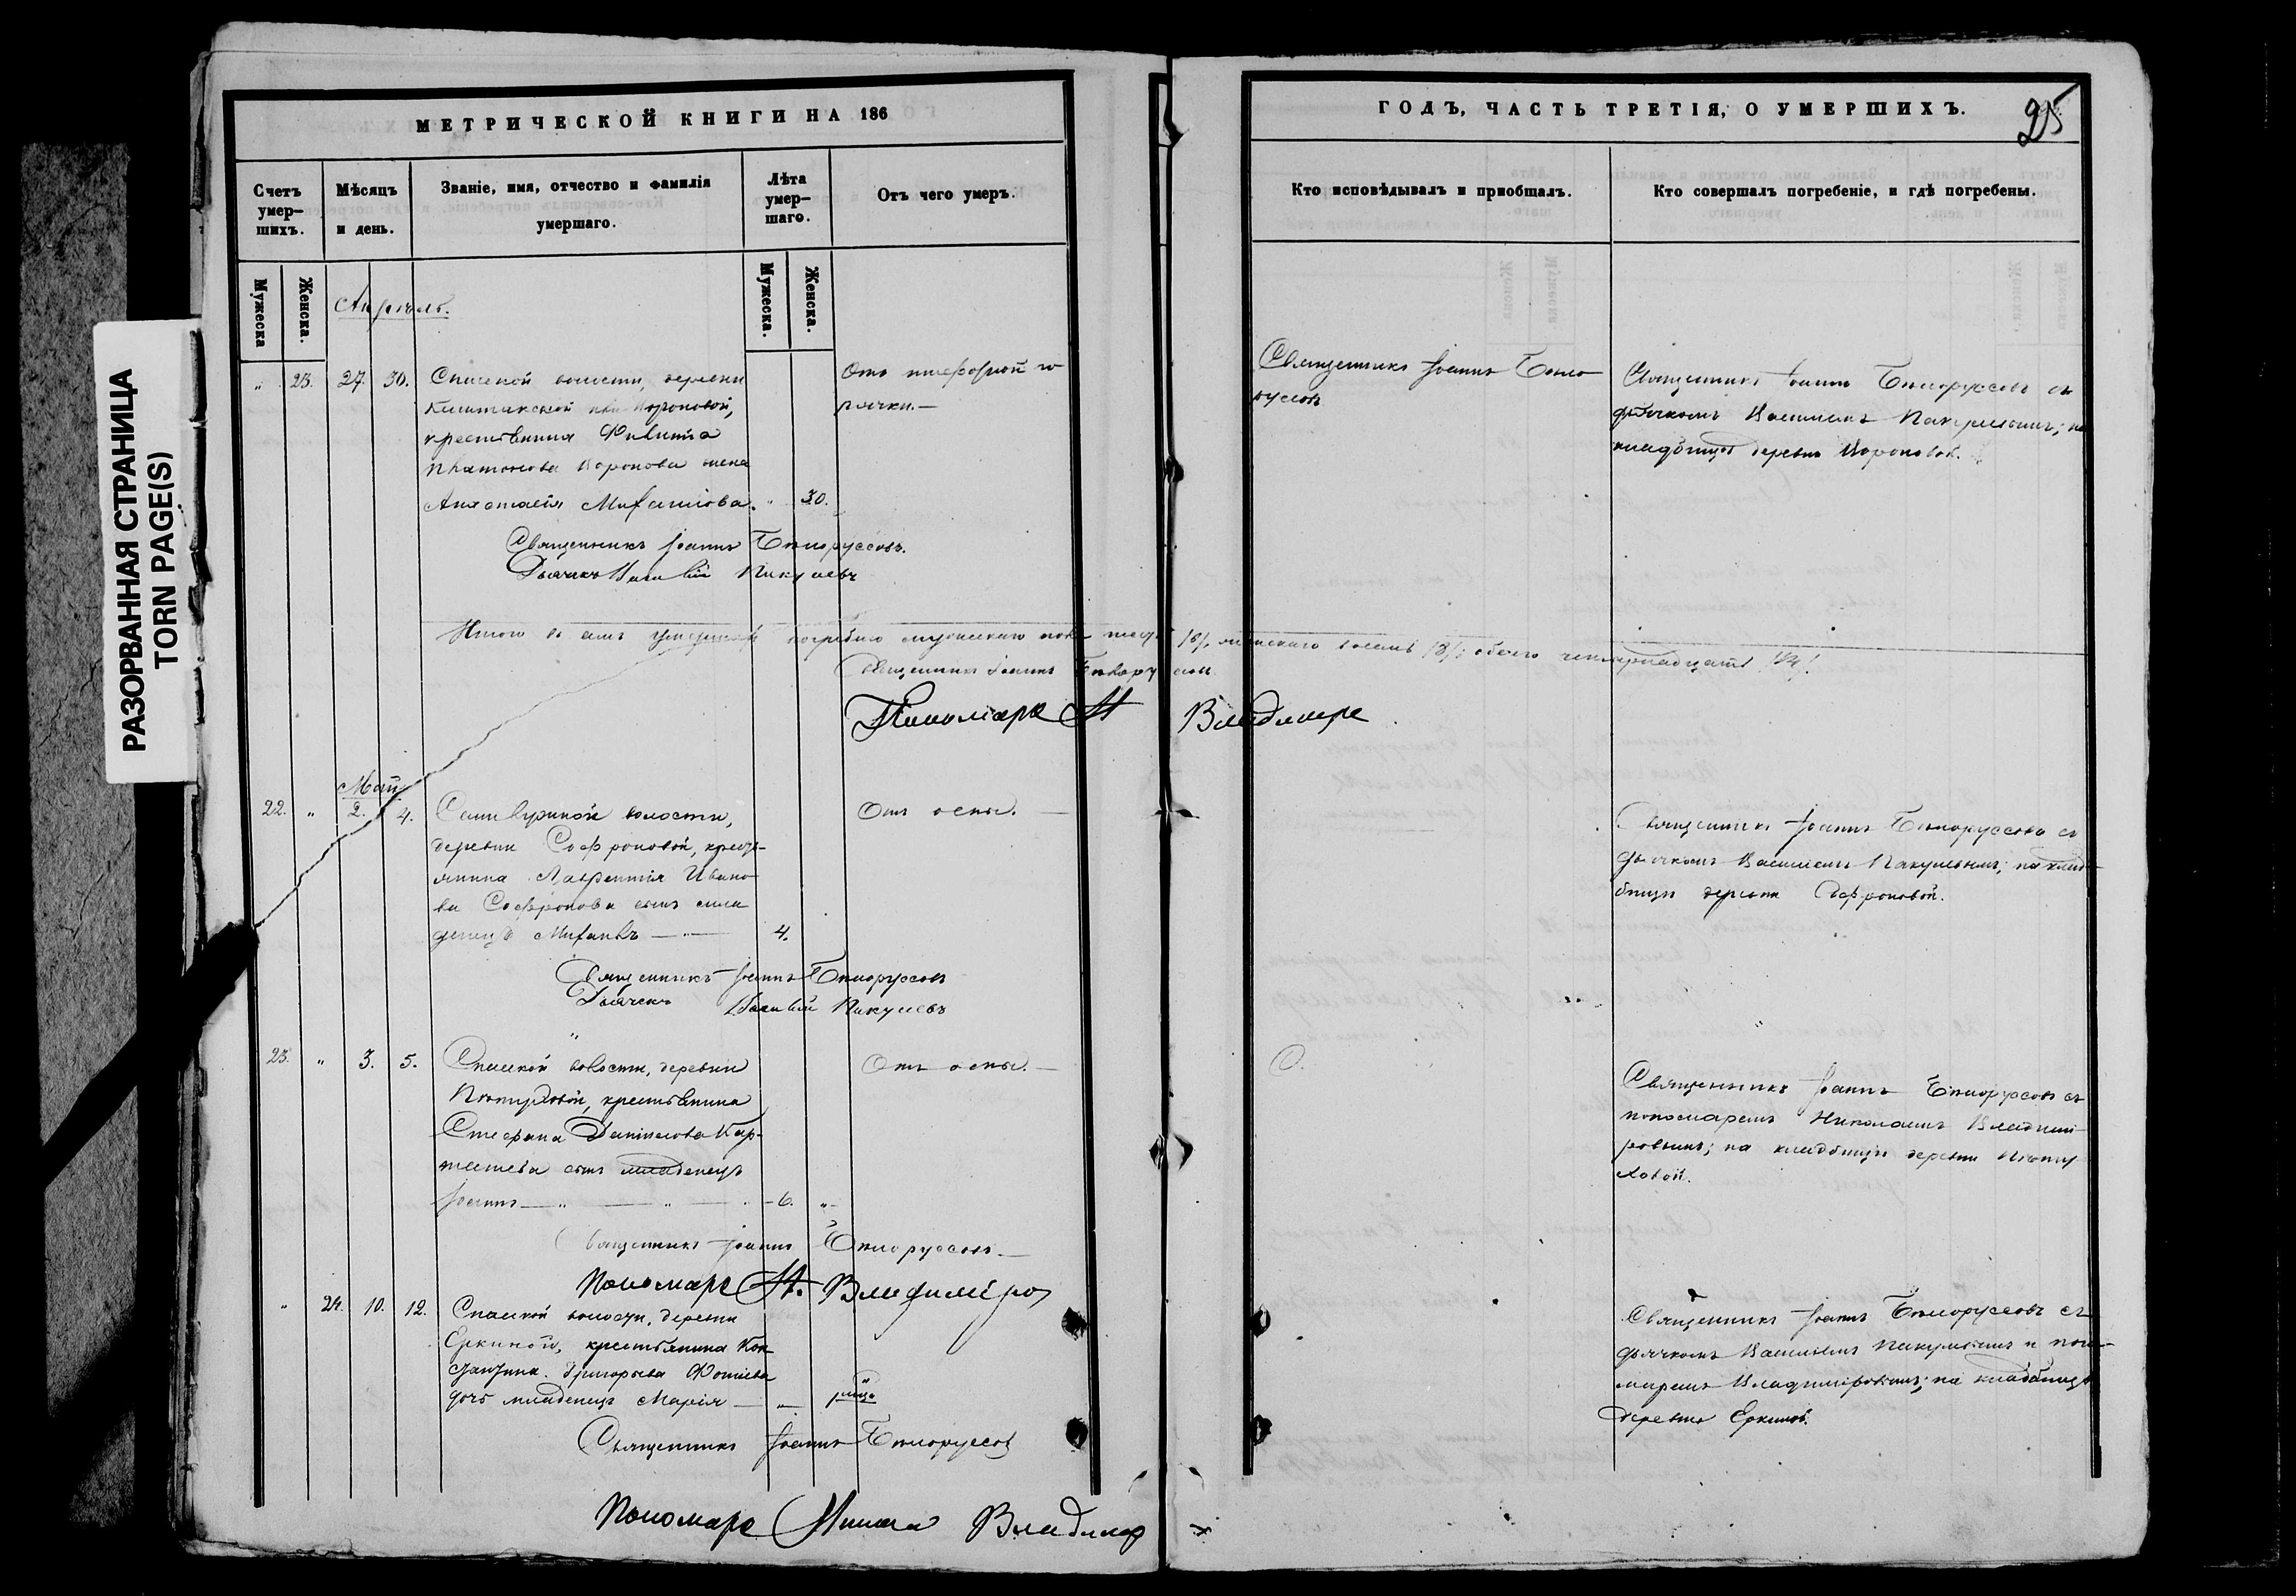 РАЗОРВАННАЯ СТРАНИЦА
TORN PAGE(S)
МЕТРИЧЕСКОЙ КНИГИ НА 186
Счетъ умер-
шихъ.
Мѣсяцъ
и день.
Званіе, имя, отчество и фамилія
умершаго.
Лѣта
умер-
шаго.
Отъ чего умеръ.
Мужеска
Женска.
Мужеска.
Женска.
Апрѣль.
" 23. 27. 30. Спасской волости, деревни
Вороновой,
крестьянина Филиппа
Платонова Воронова жена
Анастасія Михаилова. " 30.
Отъ горячки.—
Священникъ Іоаннъ Бѣлоруссовъ.
Дьячекъ Василій Пакулевъ
Итого въ семъ погребено мужескаго пола женскаго восемь /8/; обоего четырнадцать /14/.
Священникъ Іоаннъ Бѣлоруссовъ
Пономарь Н Владимире
Май
22. " 2. 4. Селивериной волости,
деревни Софроновой, кресть-
янина Лаврентія Ивано-
ва Софронова сынъ мла
денецъ Михаилъ — 4.
Отъ оспы.—
Священникъ Іоаннъ Бѣлоруссовъ
Дьячекъ Василій Пакулевъ
23. " 3. 5. Спасской волости, деревни
крестьянина
Стефана Даніилова Кар-
сынъ младенецъ
Іоаннъ — " — " — 6. "
Отъ оспы.—
Священникъ Іоаннъ Бѣлоруссовъ.—
Пономарь Н. Владиміров
" 24. 10. 12. Спасской волости, деревни
Еркиной, крестьянина Кон
стантина Григорьева Фотіева
дочь младенецъ Марія — "
Священникъ Іоаннъ Бѣлоруссов
Пономарь Никола Владимір
ГОДЪ, ЧАСТЬ ТРЕТІЯ, О УМЕРШИХЪ.
25
Кто исповѣдывалъ и пріобщалъ.
Кто совершалъ погребеніе, и гдѣ погребены.
Священникъ Іоаннъ Бѣло
руссовъ
Священникъ Іоаннъ Бѣлоруссовъ съ
дьячкомъ Василіемъ Пакулевымъ; на
кладбищѣ деревни Вороновой.
Священникъ Іоаннъ Бѣлоруссовъ съ
дьячкомъ Василіемъ Пакулевымъ; на клад-
бищѣ деревни Софроновой.
С.
Священникъ Іоаннъ Бѣлоруссовъ съ
пономаремъ Николаемъ Владимі-
ровымъ; на кладбищѣ деревни
ховой.
Священникъ Іоаннъ Бѣлоруссовъ съ
дьячкомъ Василіемъ Пакулевымъ и поно-
маремъ Владиміровымъ; на кладбищѣ
деревни Еркиной.